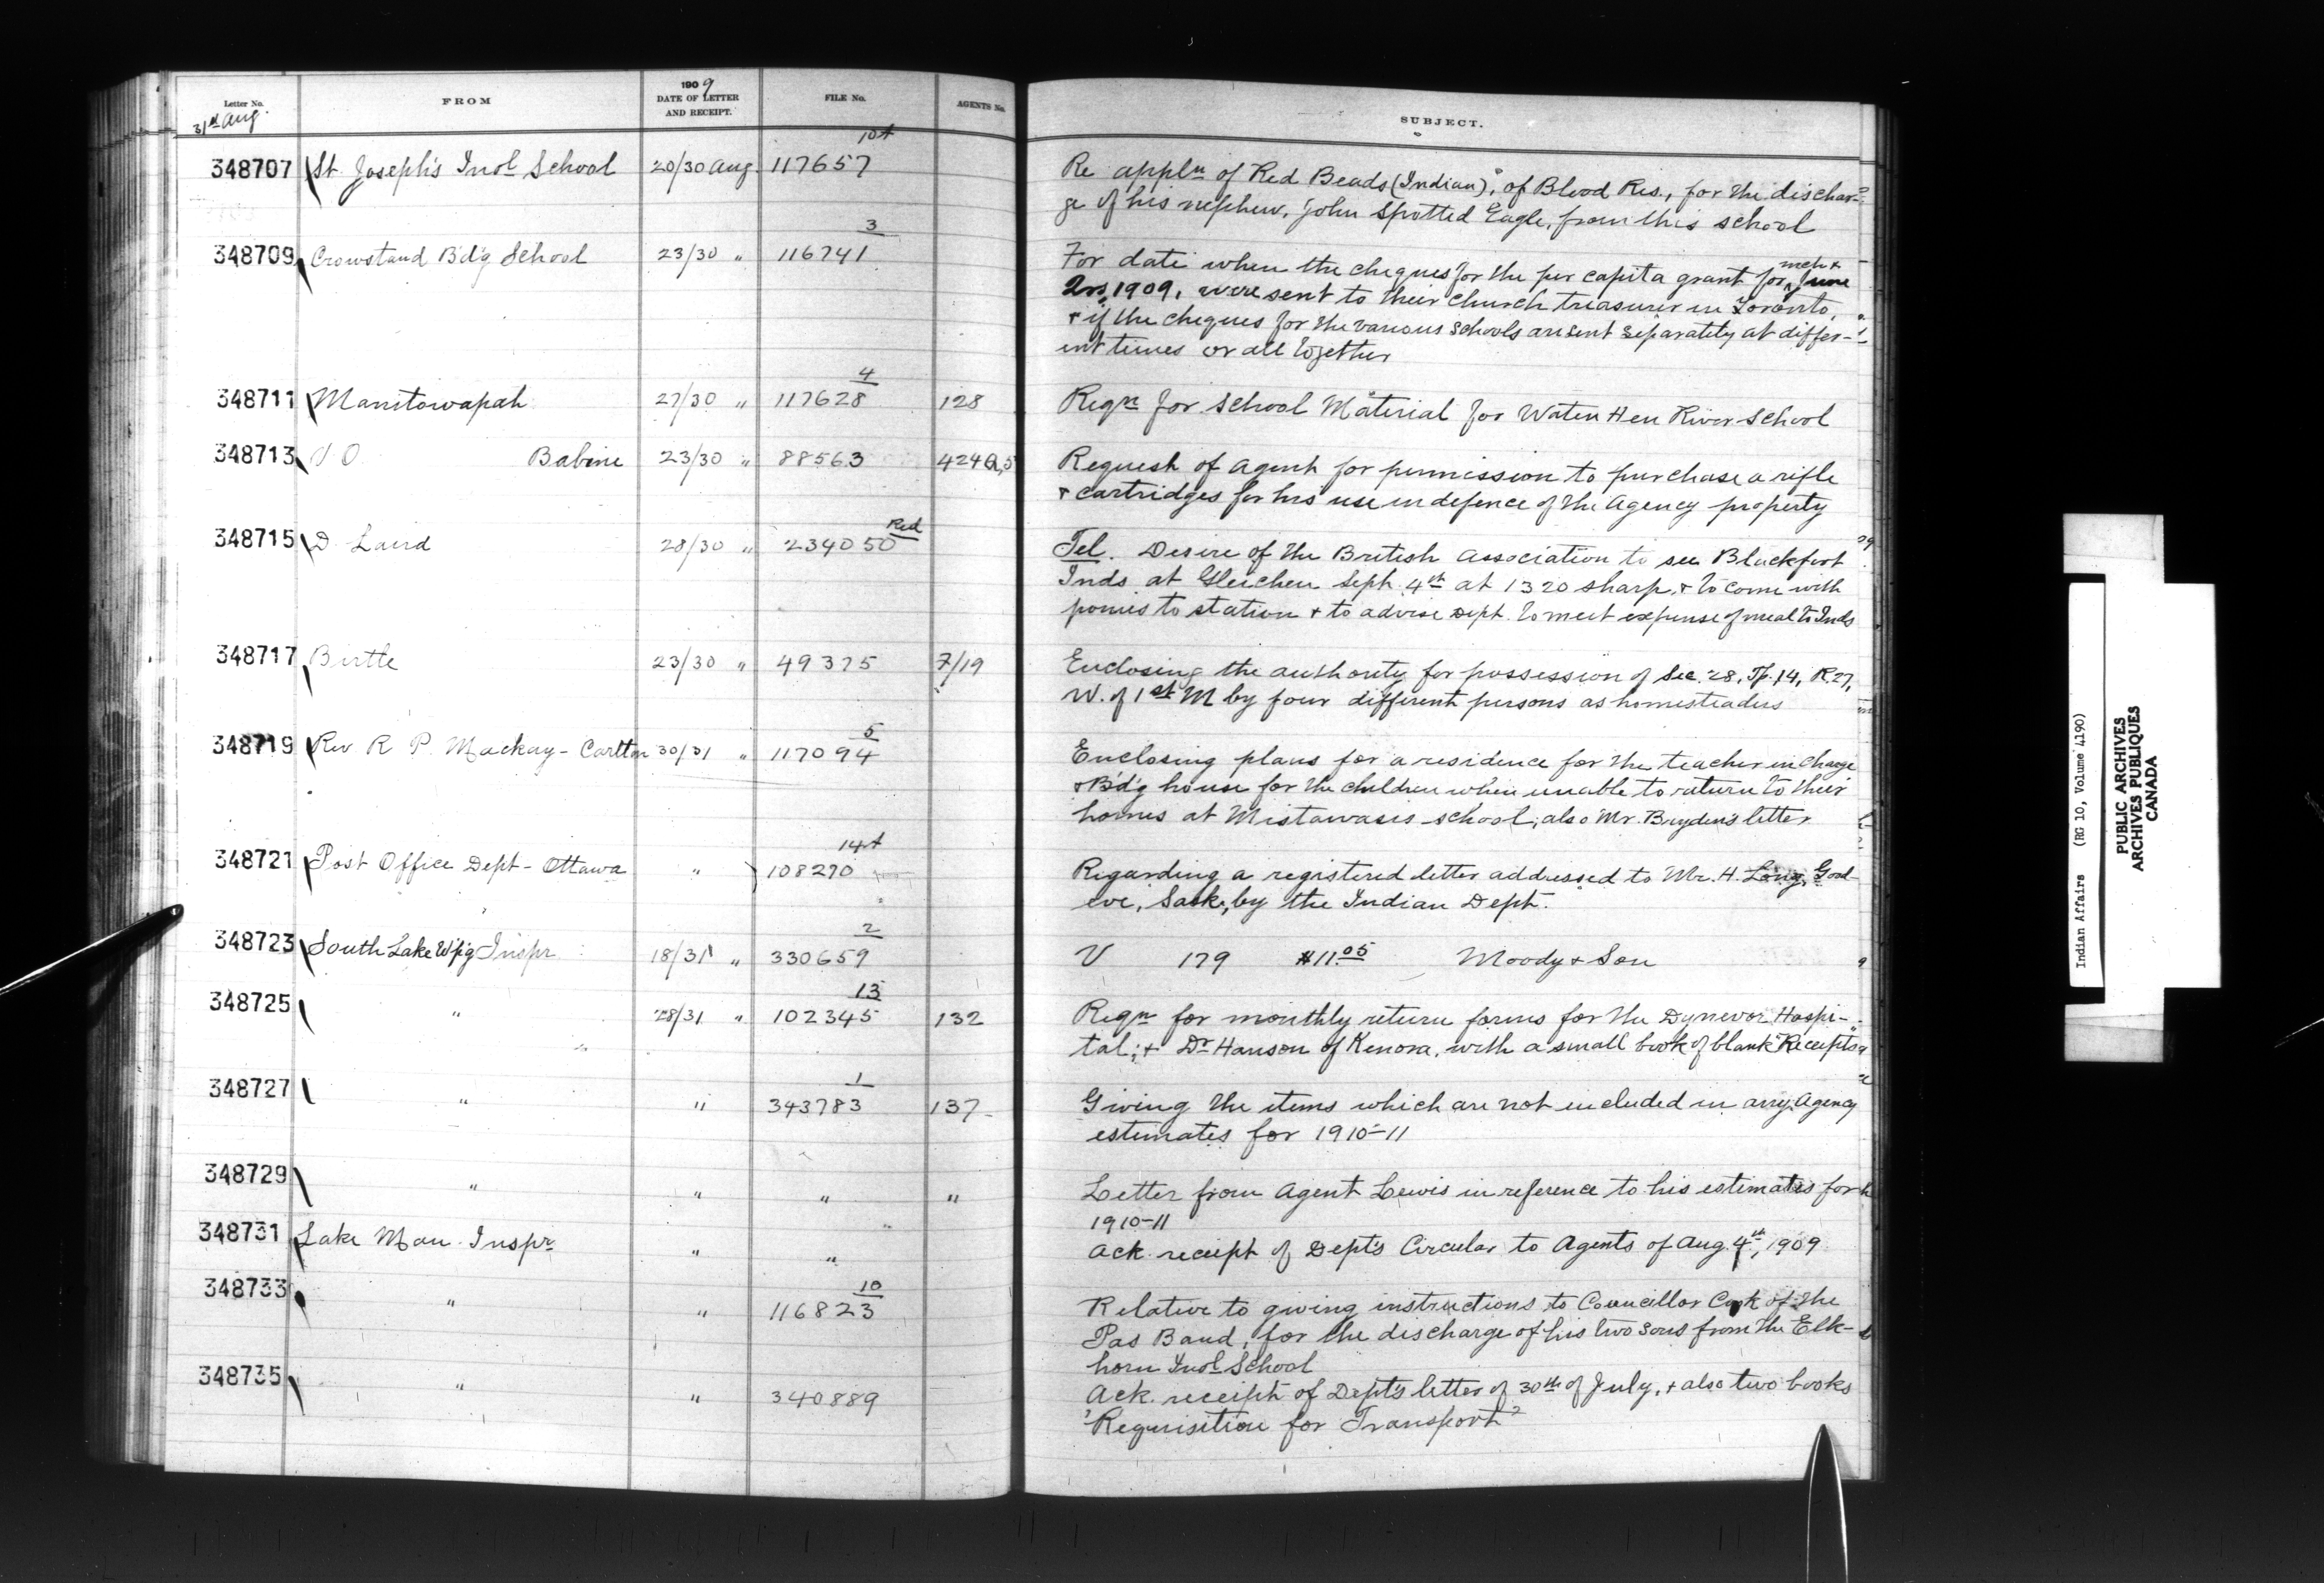 Letter No.
31st Aug.
FROM
1909
DATE OF LETTER
AND RECEIPT.
FILE No.
AGENTS No.
SUBJECT.
348707 St. Joseph's Indl School 20/30 Aug. 117657 10A
Re appln of Red Beads (Indian), of Blood Res., for the dischar-
ge of his nephew, John Spotted Eagle, from this school
348709 Crowstand B'd'g School 23/30 " 116741 3
For date when the cheques for the per capita grant for mch & June
Qrs, 1909, were sent to their church treasurer in Toronto,
& if the cheques for the various schools are sent separately at differ-
ent times or all together
348711 Manitowapah 27/30 " 117628 4 128
Reqn for School Material for Water Hen River School
348713 Babine 23/30 " 88563
Request of Agent for permission to purchase a rifle
& cartridges for his use in defence of the Agency property
348715 D. Laird 28/30 " 234050 Red
Tel. Desire of the British Association to see Blackfoot
Inds at Gleichen Sept. 4th at 1320 sharp, & to come with
ponies to station & to advise Dept. to meet expense of meal to Inds
348717 Birtle 23/30 " 49375 7/19
Enclosing the authority for possession of Sec. 28, Tp. 14, R. 27,
W. of 1st M by four different persons as homesteaders
348719 Rev R P. Mackay - Carlton 30/31 " 117094 5
Enclosing plans for a residence for the teacher in charge
& B'd'g house for the children when unable to return to their
homes at Mistawasis school; also Mr. Bryden's letter
348721 Post Office Dept - Ottawa " 108270 14A
Regarding a registered letter addressed to Mr. H. Long, Good-
eve, Sask., by the Indian Dept.
348723 South Lake W'p'g Inspr 18/31 " 330659 2
V 179 $11.05 Moody & Son
348725 " 28/31 " 102345 13 132
Reqn for monthly return forms for the Dynevor Hospi-
tal; & Dr Hanson of Kenora, with a small book of blank Receipts
348727 " " 343783 1 137
Giving the items which are not included in any Agency
estimates for 1910-11
348729 " " " "
Letter from Agent Lewis in reference to his estimates for
1910-11
348731 Lake Man. Inspr " "
Ack. receipt of Dept's Circular to Agents of Aug. 4th, 1909
348733 " " 116823 10
Relative to giving instructions to Councillor Cook of the
Pas Band, for the discharge of his two sons from the Elk-
horn Indl School
348735 " " 340889
Ack. receipt of Dept's letter of 30th of July, & also two books
"Requisition for Transport"
Indian Affairs (RG 10, Volume 4190)
PUBLIC ARCHIVES
ARCHIVES PUBLIQUES
CANADA